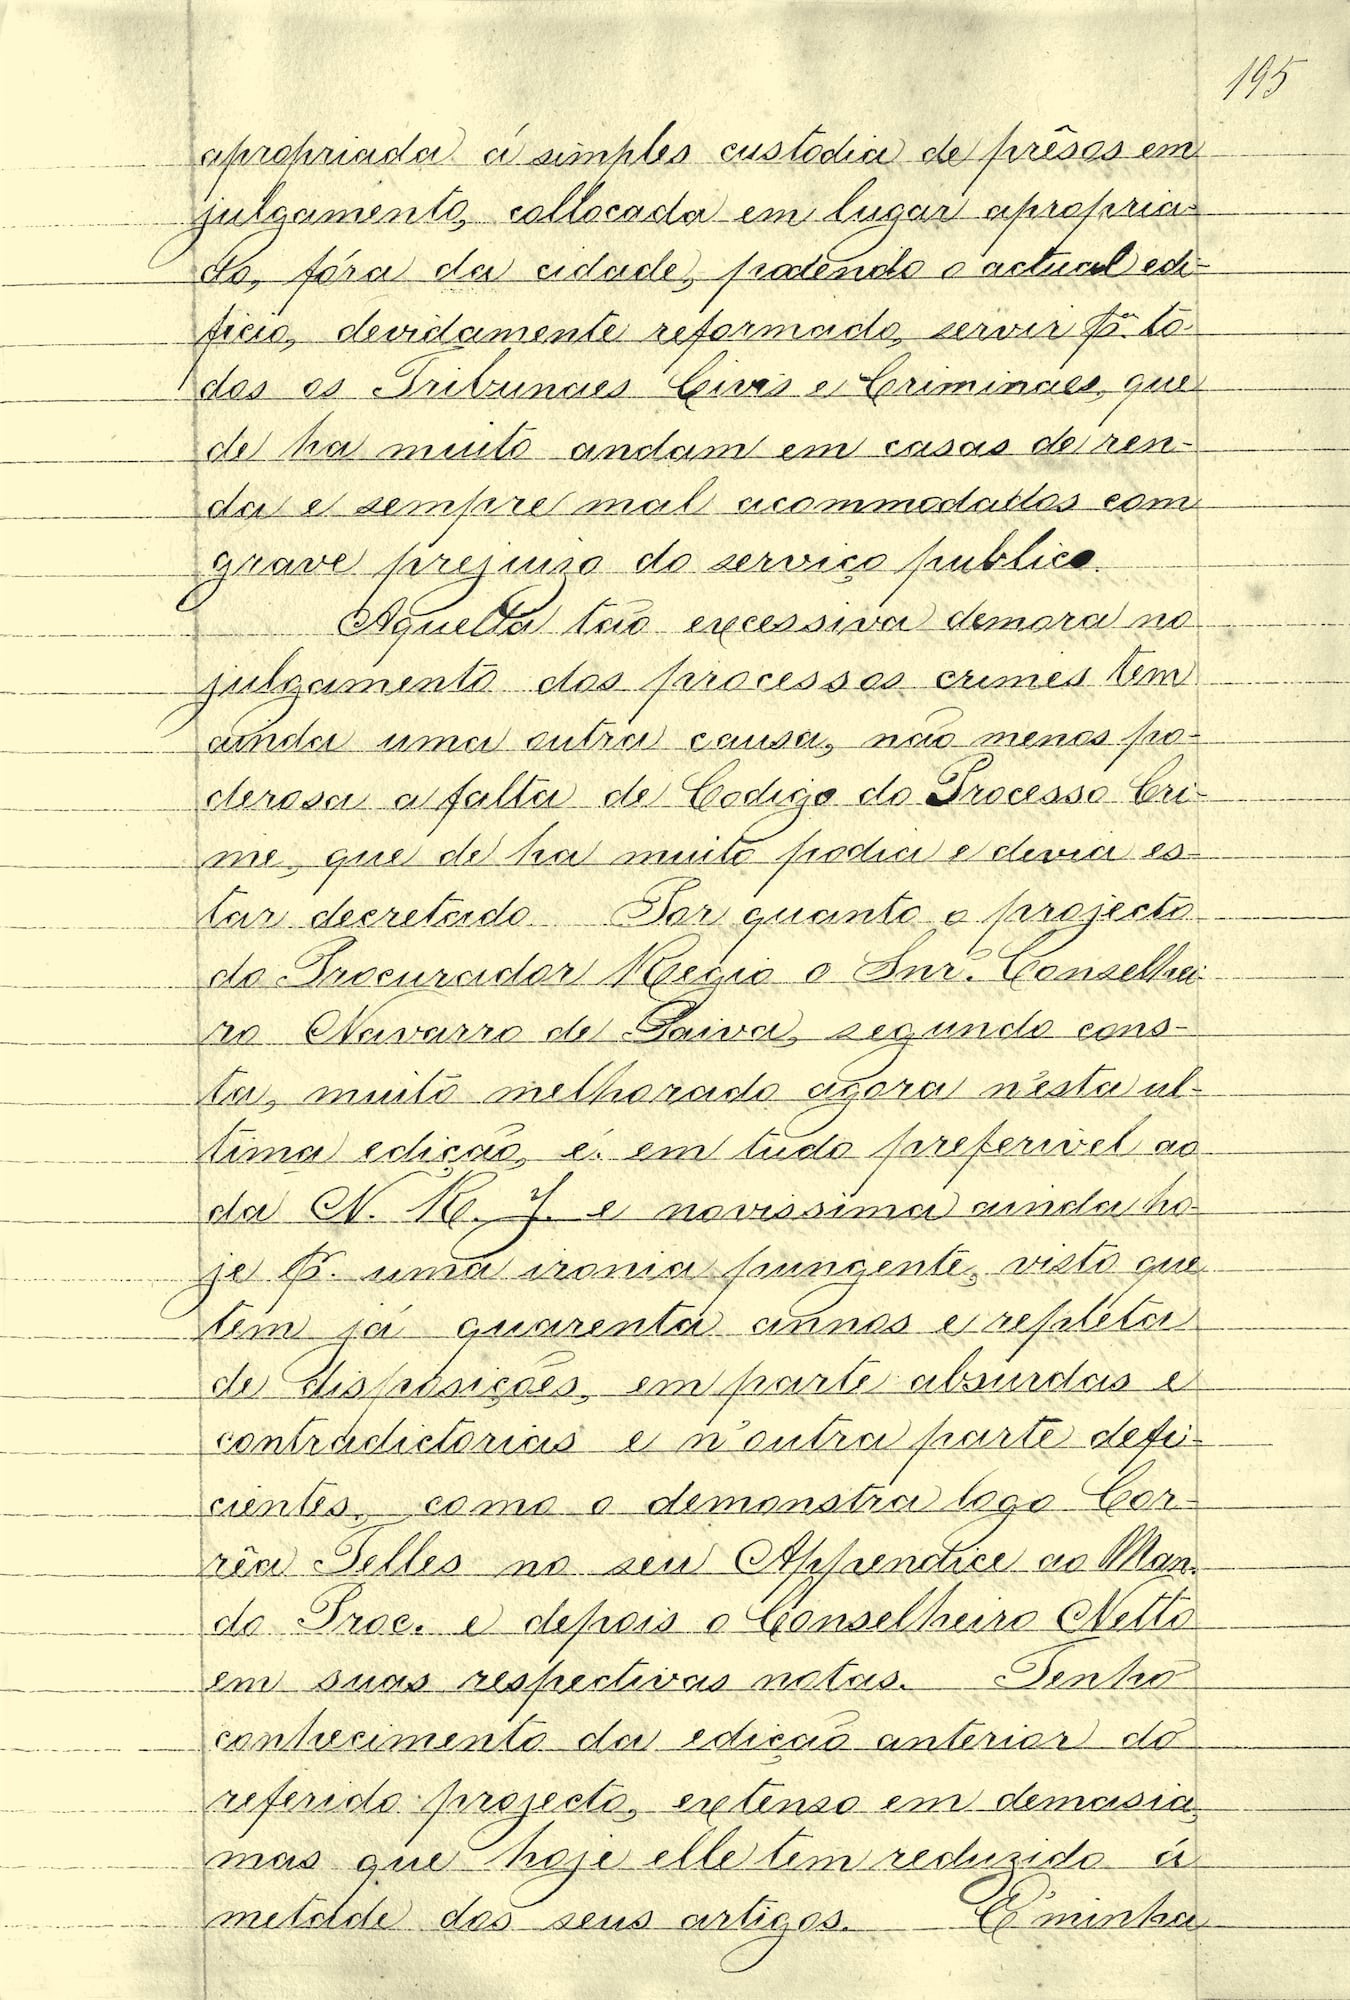 195
apropriada á simples custodia de prêsos em
julgamento, collocada em lugar apropria-
do, fóra da cidade, podendo o actual edi-
ficio, devidamente reformado, servir pª. to-
dos os Tribunaes Civis e Criminaes, que
de ha muito andam em casas de ren-
da e sempre mal acommodados com
grave prejuizo do serviço publico.
Aquella tão excessiva demora no
julgamento dos processos crimes tem
ainda uma outra causa, não menos po-
derosa a falta de Codigo do Processo Cri-
me, que de ha muito podia e devia es-
tar decretado. Por quanto o projecto
do Procurador Regio o Snr. Conselhei-
ro Navarro de Paiva, segundo cons-
ta, muito melhorado agora n'esta ul-
tima edição, é em tudo preferivel ao
da N. R. J. e novissima ainda ho-
je p. uma ironia pungente, visto que
tem já quarenta annos e repleta
de disposições, em parte absurdas e
contradictorias e n'outra parte defi-
cientes, como o demonstra logo Cor-
rêa Telles no seu Appendice ao Man.
do Proc. e depois o Conselheiro Netto
em suas respectivas notas. Tenho
conhecimento da edição anterior do
referido projecto, extenso em demasia,
mas que hoje elle tem reduzido á
metade dos seus artigos. É minha